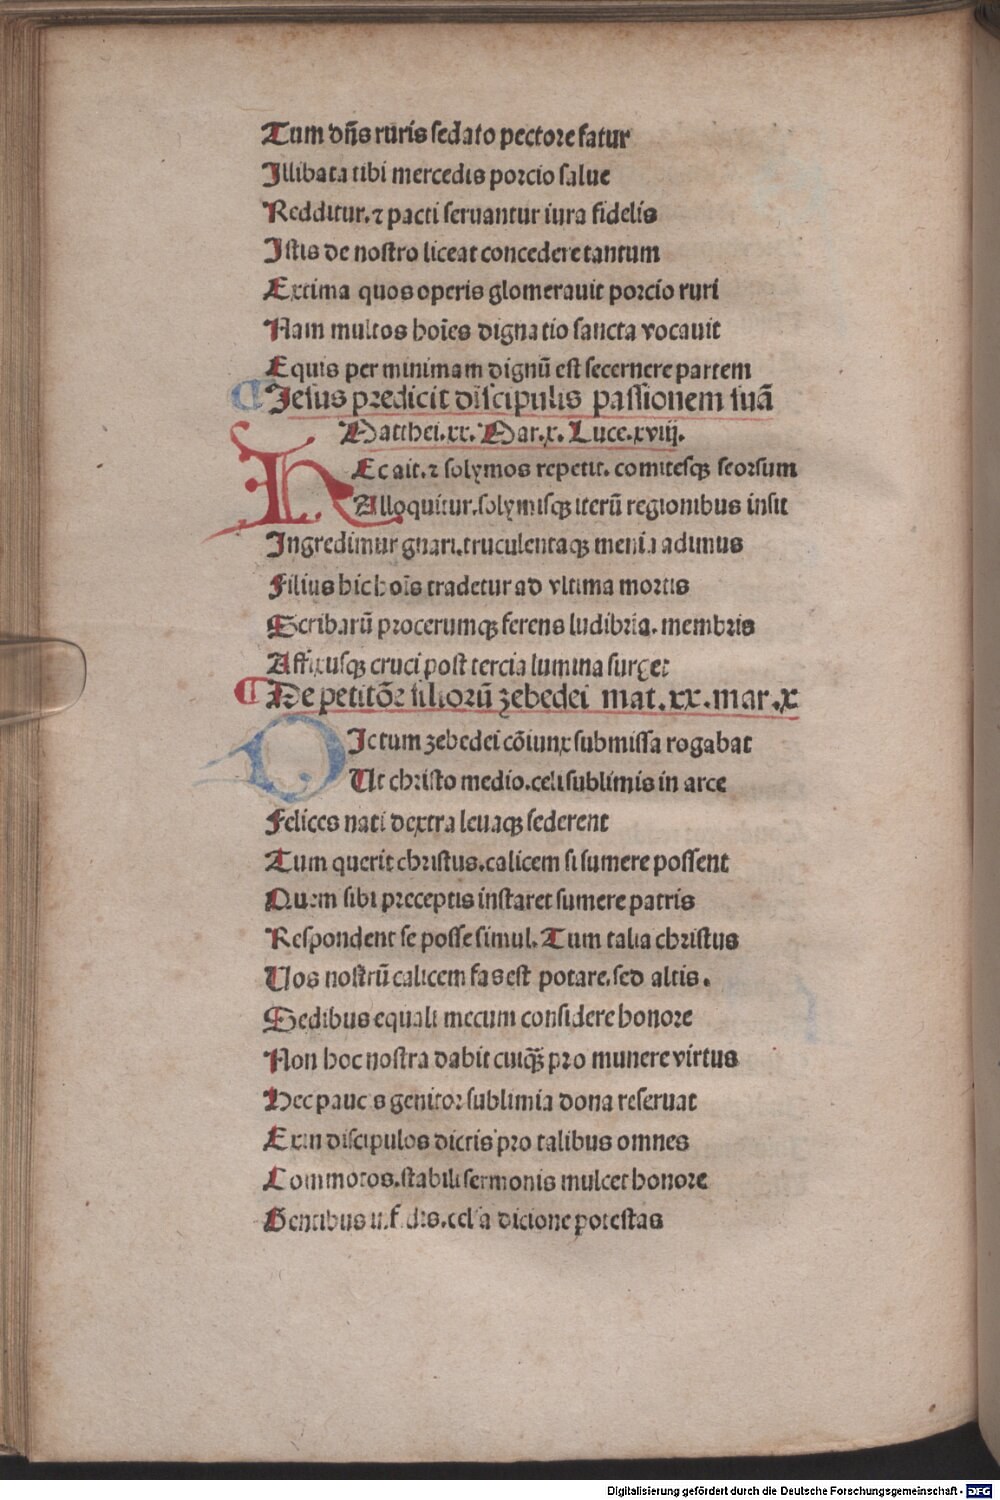 Tum dñs ruris sedato pectore fatur
Illibata tibi mercedis porcio salue
Redditur. ⁊ pacti seruantur iura fidelis
Istis de nostro liceat concedere tantum
Extima quos operis glomerauit porcio ruri
Nam multos hoīes dignatio sancta vocauit
Equis per minimam dignū est secernere partem
¶ Jesus predicit discipulis passionem suā
Matthei.xx. Mar.x. Luce.xviij.
HEc ait. ⁊ solymos repetit. comitesqꝫ seorsum
Alloquitur. solymisqꝫ iterū regionibus insit
Ingredimur gnari. truculentaqꝫ menia adimus
Filius hic hoīs tradetur ad vltima mortis
Scribarū procerumqꝫ ferens ludibria. membris
Affixusqꝫ cruci post tercia lumina surget
¶ De petitōe filiorū zebedei mat.xx.mar.x
DIctum zebedei cōiunx submissa rogabat
Ut christo medio. celi sublimis in arce
Felices nati dextra leuaqꝫ sederent
Tum querit christus. calicem si sumere possent
Quem sibi preceptis instaret sumere patris
Respondent se posse simul. Tum talia christus
Uos nostrū calicem fas est potare. sed altis.
Sedibus equali mecum considere honore
Non hoc nostra dabit cuiqꝫ̄ pro munere virtus
Hec paucis genitor sublimia dona reseruat
Exin discipulos dictis pro talibus omnes
Commotos. stabili sermonis mulcet honore
Gentibus dicione potestas
Digitalisierung gefördert durch die Deutsche Forschungsgemeinschaft - DFG